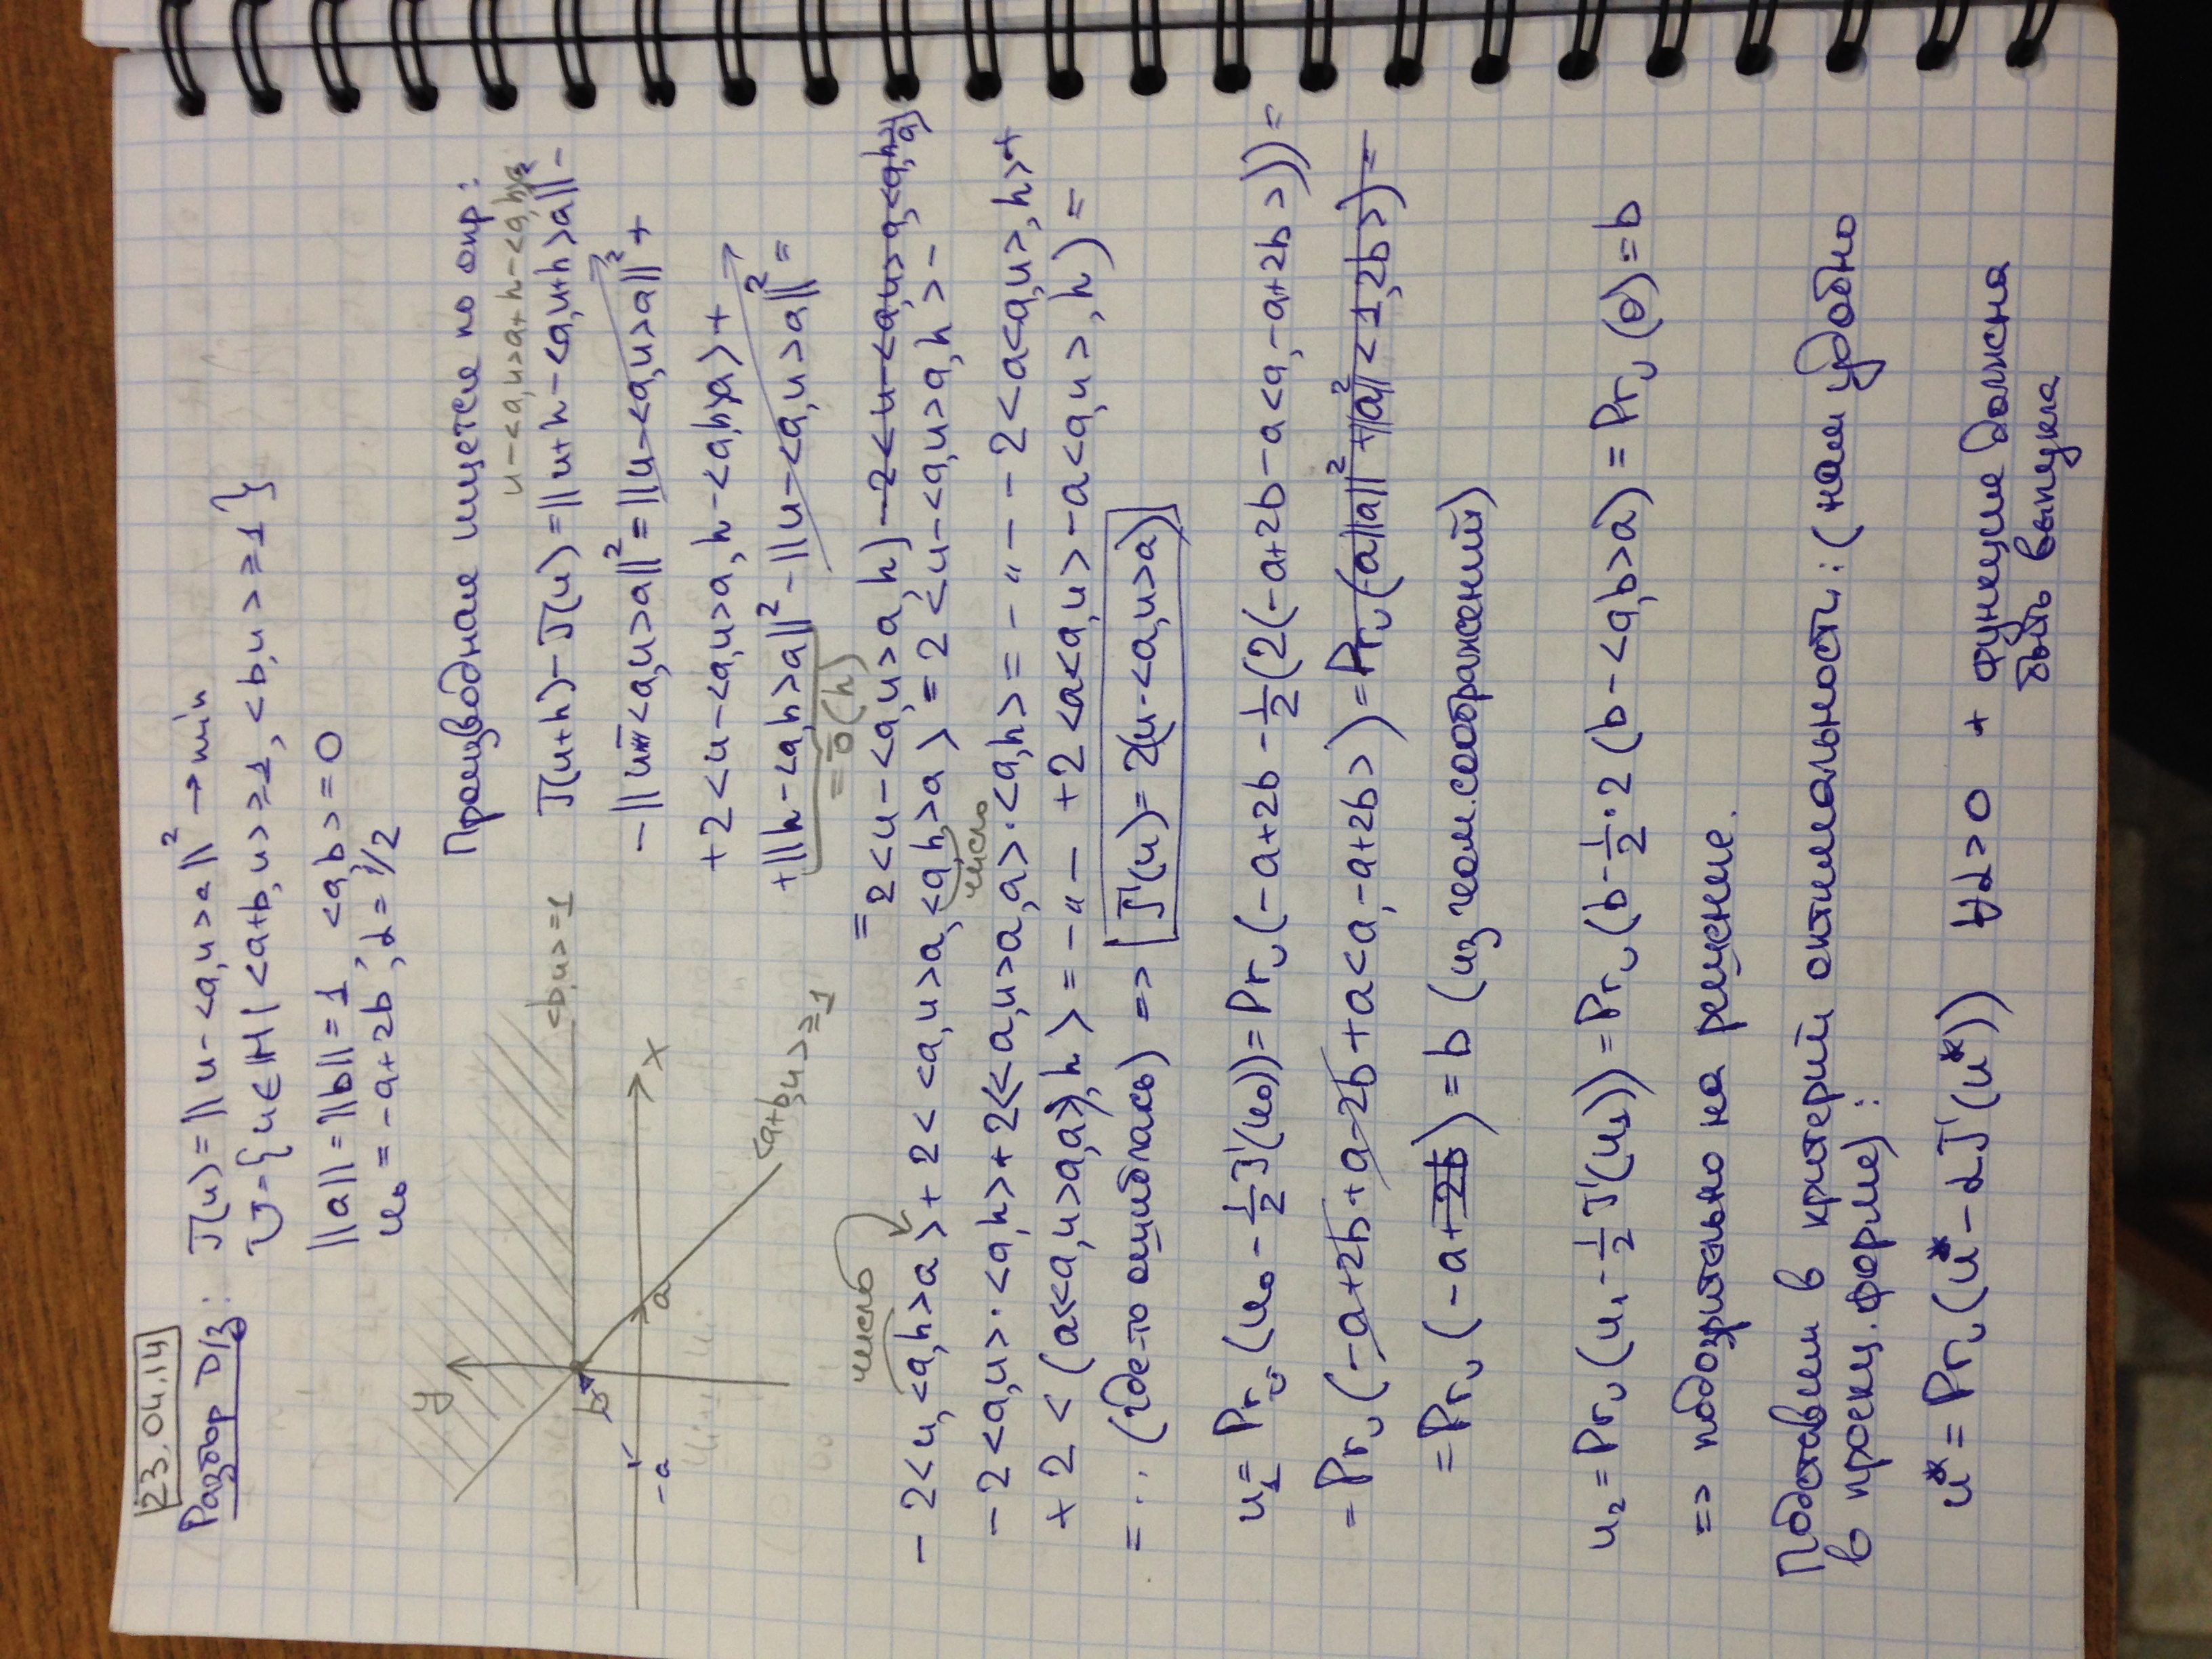 23.04.14
Разбор Д/з: J(u) = ||u - <a,u>a||² → min
U = {u ∈ H | <a+b,u> ≥ 1, <b,u> ≥ 1}
||a|| = ||b|| = 1, <a,b> = 0
u₀ = -a+2b, α = 1/2
y
<b,u> = 1
b
x
-a
a
<a+b,u> ≥ 1
Производная ищется по опр:
u - <a,u>a + h - <a,h>a
J(u+h) - J(u) = ||u+h - <a,u+h>a||² -
- ||u - <a,u>a||² = ||u - <a,u>a||² +
+ 2<u - <a,u>a, h - <a,h>a> +
+ ||h - <a,h>a||² - ||u - <a,u>a||² =
= ō(h)
= 2<u - <a,u>a, h> - 2<u - <a,u>a, <a,h>a>
число
- 2<u, <a,h>a> + 2<<a,u>a, <a,h>a> = 2<u - <a,u>a, h> -
число
- 2<a,u>·<a,h> + 2<<a,u>a, a>·<a,h> = -"- - 2<a<a,u>, h> +
+ 2<(a<<a,u>a,a>), h> = -"- + 2<a<a,u> - a<a,u>, h) =
= ... (где-то ошиблась) => J'(u) = 2(u - <a,u>a)
u₁ = Pr_U (u₀ - 1/2 J'(u₀)) = Pr_U (-a+2b - 1/2 (2(-a+2b - a<a,-a+2b>))) =
= Pr_U (-a+2b + a - 2b + a<a,-a+2b>) = Pr_U (a||a||² + ||a||² <1,2b>) =
= Pr_U (-a + 2b) = b (из геом. соображений)
u₂ = Pr_U (u₁ - 1/2 J'(u₁)) = Pr_U (b - 1/2·2 (b - <a,b>a) = Pr_U (0) = b
=> подозрительно на решение.
Подставим в критерий оптимальности: (нам удобно
в проекц. форме):
u* = Pr_U (u* - αJ'(u*)) ∀α>0 + функция должна
быть выпукла